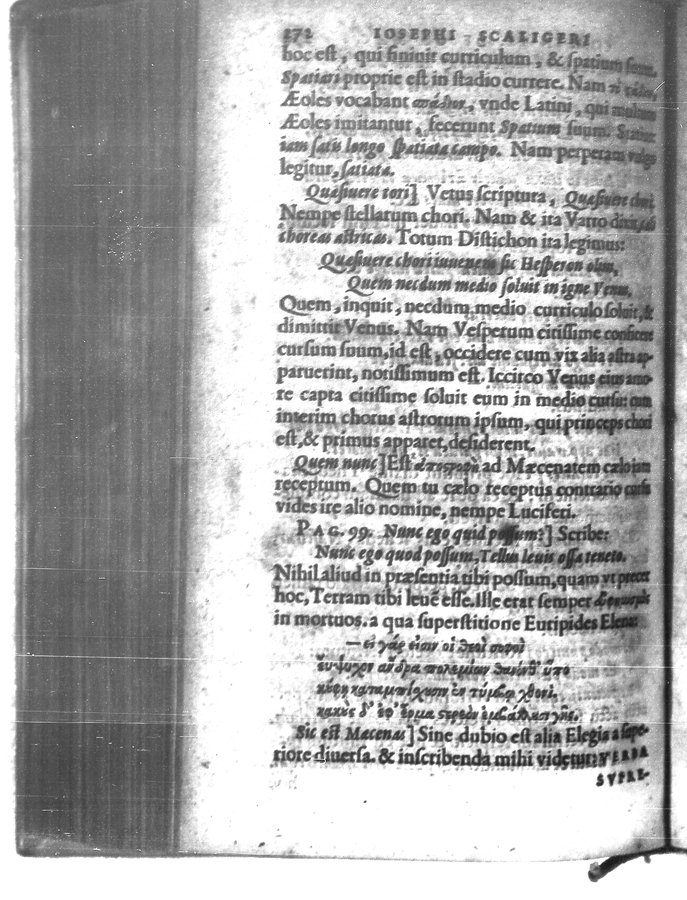 272 IOSEPHI SCALIGERI
hoc est, qui finiuit curriculum, & spatium suum.
Spatiari proprie est in stadio currere. Nam
Æoles vocabant σπάδιον, vnde Latini, qui multum
Æoles imitantur, fecerunt Spatium suum.
iam satis longo spatiata campo. Nam perperam vulgo
legitur, satiata.
Quæsiuere tori] Vetus scriptura, Quæsiuere chori.
Nempe stellarum chori. Nam & ita Varro dixit,
choreas astricas. Totum Distichon ita legimus:
Quæsiuere chori iuuenem sic Hesperon olim,
Quem necdum medio soluit in igne Venus.
Quem, inquit, necdum medio curriculo soluit, &
dimittit Venus. Nam Vesperum citissime conficere
cursum suum, id est, occidere cum vix alia astra ap-
paruerint, notissimum est. Iccirco Venus eius amo-
re capta citissime soluit eum in medio cursu: cum
interim chorus astrorum ipsum, qui princeps chori
est, & primus apparet, desiderent.
Quem nunc] Est ἀποστροφὴ ad Mæcenatem cælo iam
receptum. Quem tu cælo receptus contrario cursu
vides ire alio nomine, nempe Luciferi.
PAG. 99. Nunc ego quid possum?] Scribe:
Nunc ego quod possum, Tellus leuis ossa teneto.
Nihil aliud in præsentia tibi possum, quam vt precer
hoc, Terram tibi leuē esse. Ille erat semper
in mortuos. a qua superstitione Euripides Elena:
— εἰ γάρ εἰσιν οἱ θεοὶ σοφοὶ
εὔψυχον ἄνδρα πολεμίων θανόνθ' ὕπο
κούφῃ καταμπίσχουσιν ἐν τύμβῳ χθονί.
κακοὺς δ' ἐφ' ἕρμα στερεὸν ἐμβάλλουσι γῆς.
Sic est Mæcenas] Sine dubio est alia Elegia a supe-
riore diuersa. & inscribenda mihi videtur: VERBA
SVPRE-